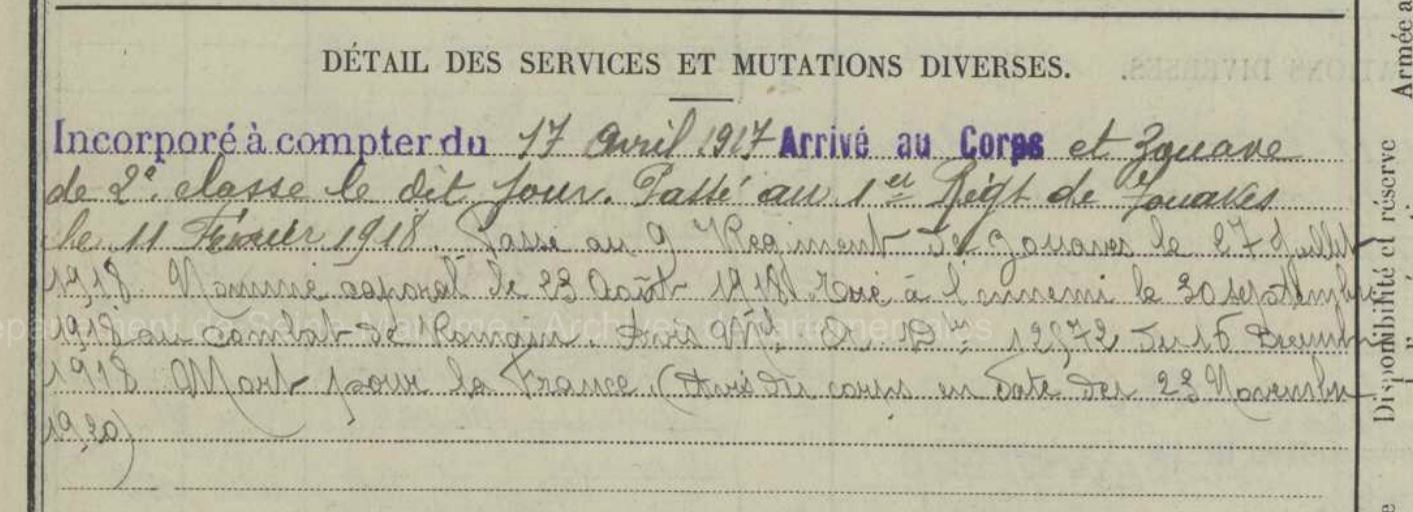 DÉTAIL DES SERVICES ET MUTATIONS DIVERSES.
Incorporé à compter du 17 avril 1917 Arrivé au Corps et zouave
de 2e classe le dit jour. Passé au 1er Régt de Zouaves
le 11 Février 1918. Passé au 9 Regiment de zouaves le 27 Juillet
1918. Nommé caporal le 23 Août 1918. Tué à l'ennemi le 30 septembre
1918 au combat de Romain. Avis Mel 12972 du 15 Decembre
1918 Mort pour la France. (Avis du corps en date du 23 Novembre
1920)
Disponibilité et réserve
Armée a